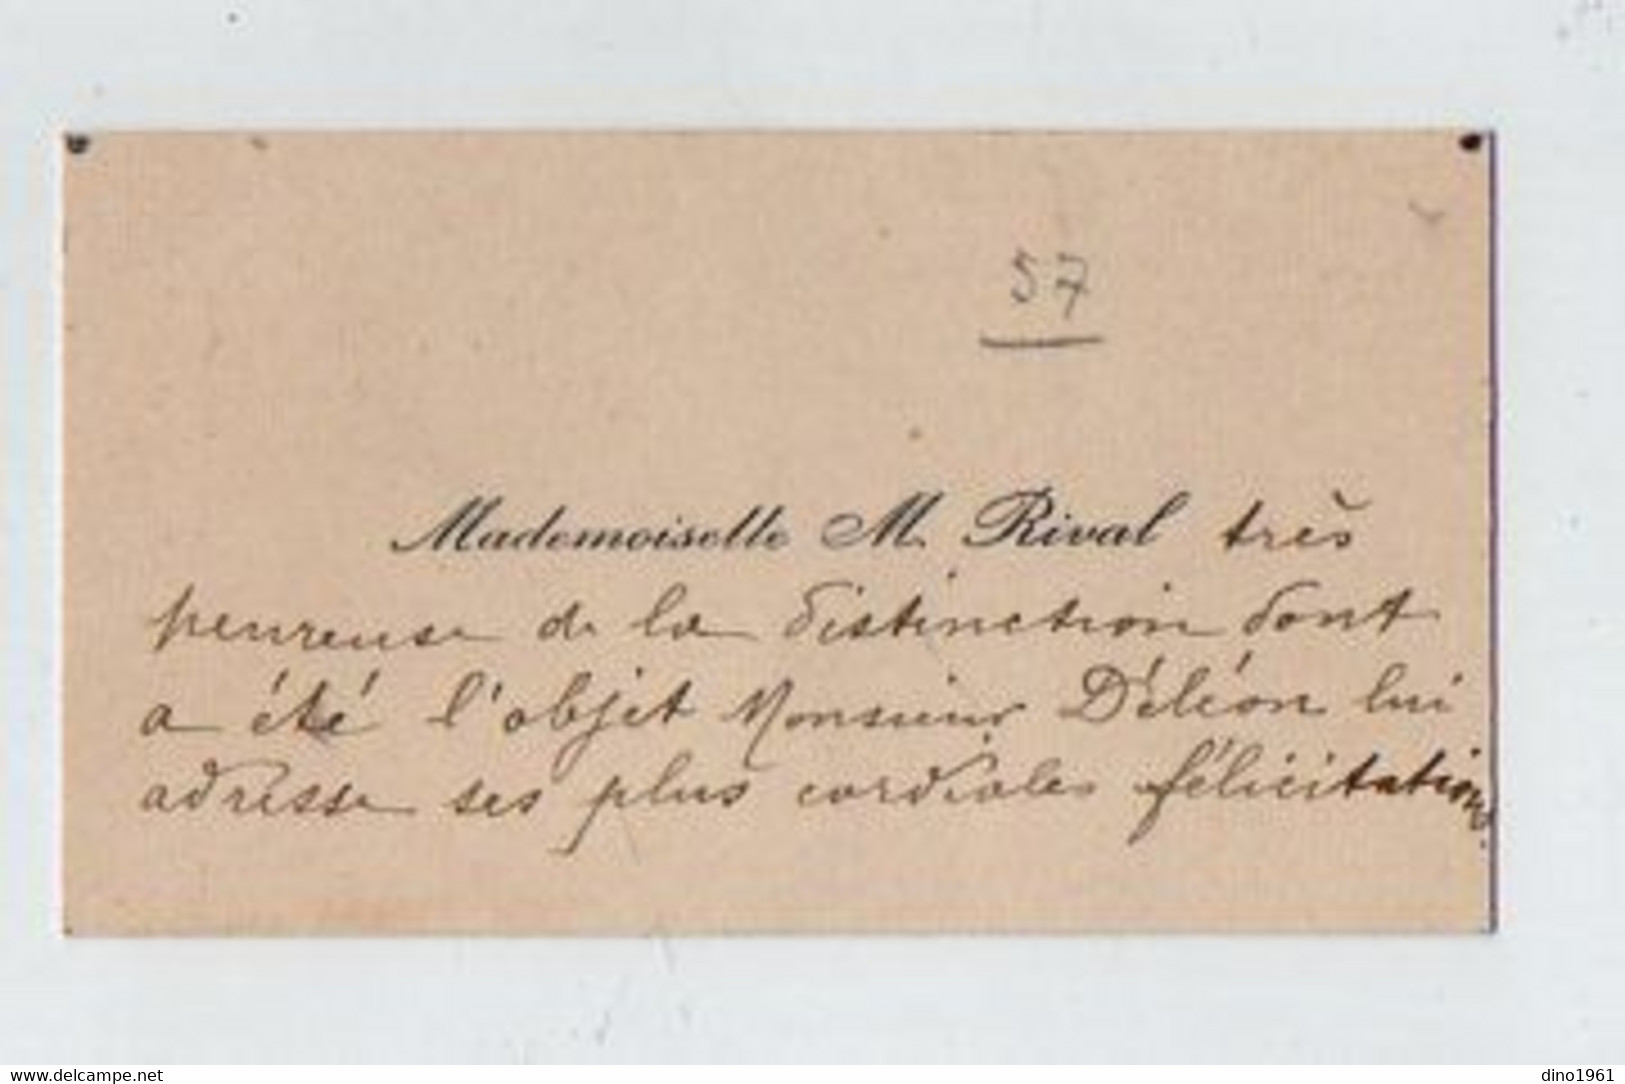 57
Mademoiselle M. Rival très
heureuse de la distinction dont
a été l'objet Monsieur Déléon lui
adresse ses plus cordiales félicitations.
www.delcampe.net
dino1961